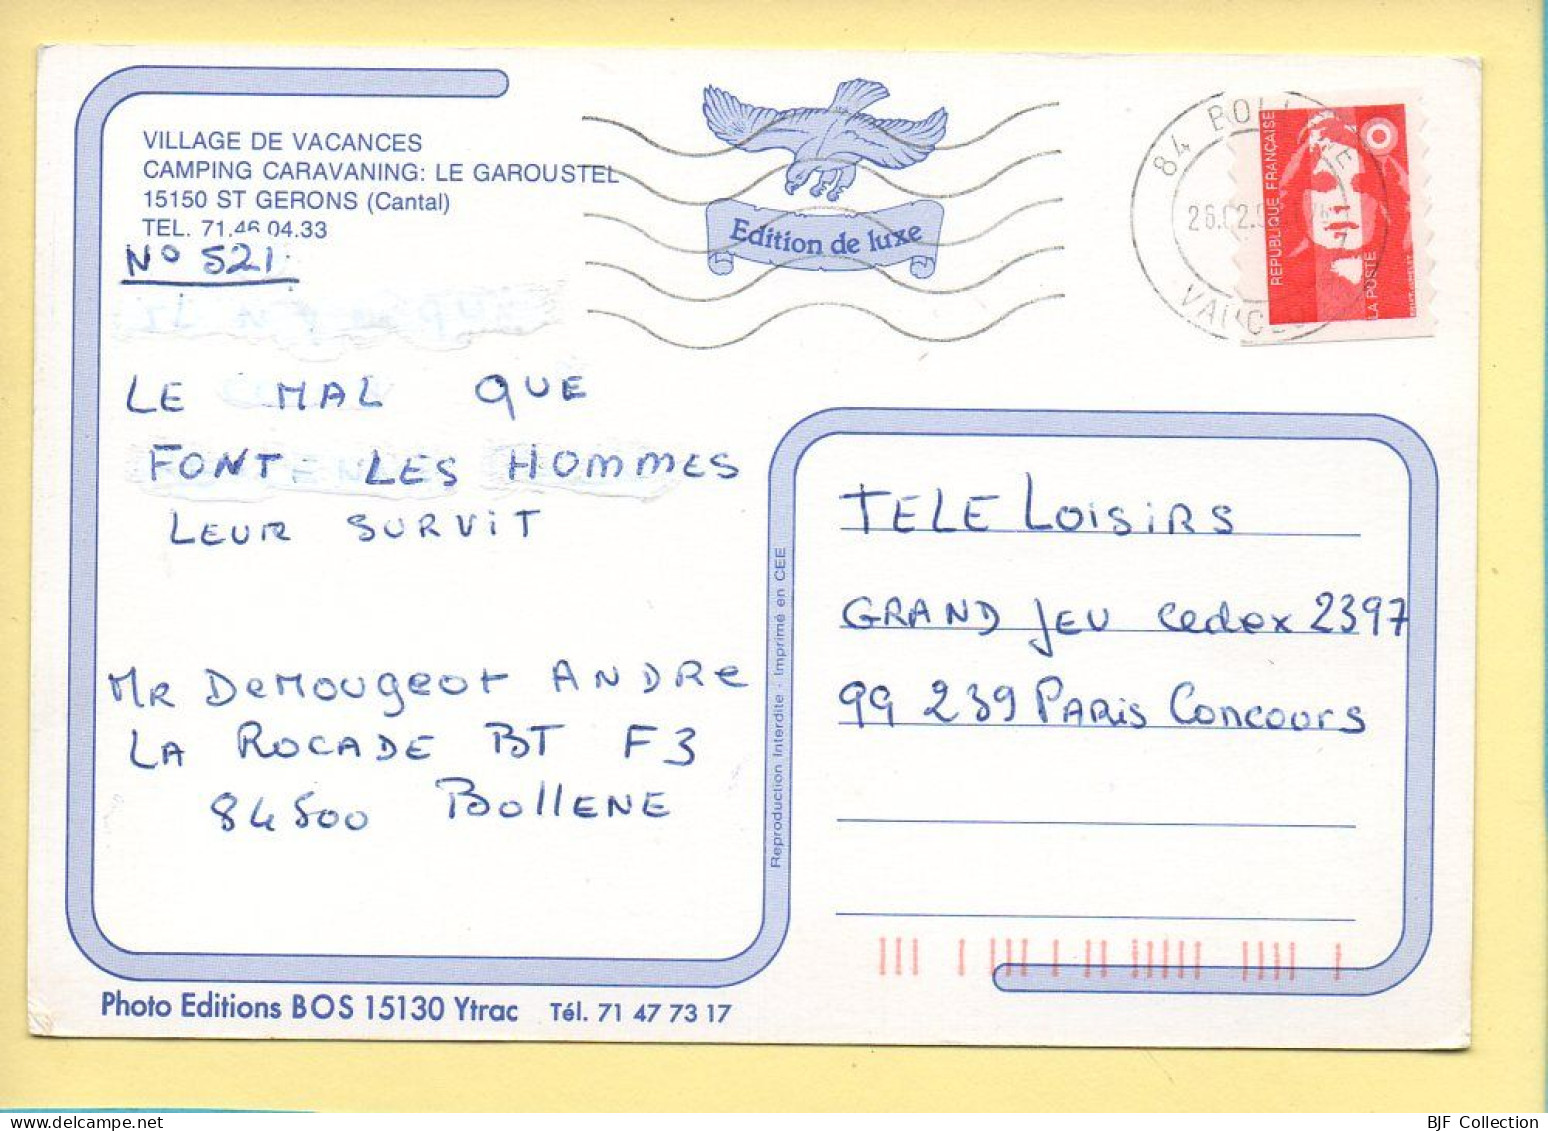 VILLAGE DE VACANCES
CAMPING CARAVANING: LE GAROUSTEL
15150 ST GERONS (Cantal)
TEL. 71.46.04.33
N° 521
LE MAL QUE
FONT LES HOMMES
LEUR SURVIT
MR DEMOUGEOT ANDRE
LA ROCADE BT F3
84500 BOLLENE
Photo Editions BOS 15130 Ytrac Tél. 71 47 73 17
Edition de luxe
Reproduction Interdite - Imprimé en CEE
84 BOL
26.02.
VAUC
REPUBLIQUE FRANÇAISE
LA POSTE
TELE LOISIRS
GRAND JEU Cedex 2397
99 239 PARIS CONCOURS
BJF Collection